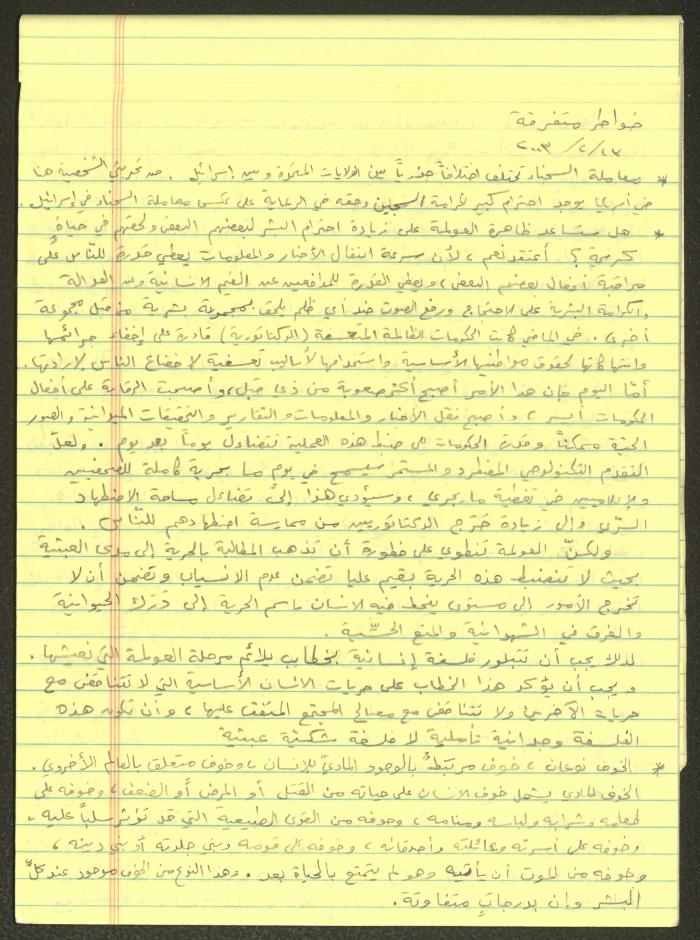 خواطر متفرقة
٢٠٠٣/٢/٢٣
* معاملة السجناء تختلف اختلافاً جذرياً بين الولايات المتحدة وبين إسرائيل . من تجربتي الشخصية هنا
في أمريكا يوجد احترام كبير لكرامة السجين وحقه في الرعاية على عكس معاملة السجناء في إسرائيل .
* هل ستساعد ظاهرة العولمة على زيادة احترام البشر لبعضهم البعض وحقهم في حياةٍ
كريمة ؟ أعتقد نعم ، لأن سرعة انتقال الأخبار والمعلومات يعطي قدرة للنّاس على
مراقبة أفعال بعضهم البعض ، ويعطي القدرة للمدافعين عن القيم الانسانية وعن العدالة
والكرامة البشرية على الاحتجاج ورفع الصوت ضد أي ظلم يلحق بمجموعة بشرية من قبل مجموعة
أخرى . في الماضي كانت الحكومات الظالمة المتعسفة (الدكتاتورية) قادرة على إخفاء جرائمها
وانتهاكاتها لحقوق مواطنيها الأساسية واستخدامها لأساليب تعسفية لإخضاع الناس لإرادتها .
أمّا اليوم فإن هذا الأمر أصبح أكثر صعوبة من ذي قبل ، وأصبحت الرقابة على أفعال
الحكومات أيسر ، وأصبح نقل الأخبار والمعلومات والتقارير والتحقيقات الميدانية والصور
الحيّة ممكناً وقدرة الحكومات على ضبط هذه العملية تتضاءل يوماً بعد يوم . ولعلّ
التقدم التكنولوجي المضطرد والمستمر سيسمح في يوم ما بحرية كاملة للصحفيين
والإعلاميين في تغطية ما يجري ، وسيؤدي هذا إلى تضاءل مساحة الاضطهاد
السرّي وإلى زيادة حَرَج الدكتاتوريين من ممارسة اضطهادهم للنّاس .
ولكنّ العولمة تنطوي على خطورة أن تذهب المطالبة بالحرية إلى مدى العبثية
بحيث لا تنضبط هذه الحرية بقيم عليا تضمن عدم الانسياب وتضمن أن لا
تخرج الأمور إلى مستوى ينحط فيه الانسان باسم الحرية إلى دَرَك الحيوانية
والغرق في الشهوانية والمتع الحسّية .
لذلك يجب أن تتبلور فلسفة إنسانية بخطاب يلائم مرحلة العولمة التي نعيشها .
ويجب أن يؤكد هذا الخطاب على حريات الانسان الأساسية التي لا تتناقض مع
حريات الآخرين ولا تتناقض مع مصالح المجتمع المتفق عليها ، وأن تكون هذه
الفلسفة وجدانية تأملية لا فلسفة شكيّة عبثية
* الخوف نوعان ، خوف مرتبطٌ بالوجود المادّي للإنسان ، وخوف متعلق بالعالم الأخروي .
الخوف المادي يشمل خوف الانسان على حياته من القتل أو المرض أو الضعف ، وخوفه على
طعامه وشرابه ولباسه ومنامه ، وخوفه من القوى الطبيعية التي قد تؤثر سلباً عليه .
وخوفه على أسرته وعائلته وأصدقائه ، وخوفه على قومه وبني جلدته أو بني دينه ،
وخوفه من الموت أن يأتيه وهو لم يتمتع بالحياة بعد . وهذا النوع من الخوف موجود عند كلّ
البشر وإن بدرجاتٍ متفاوتة .